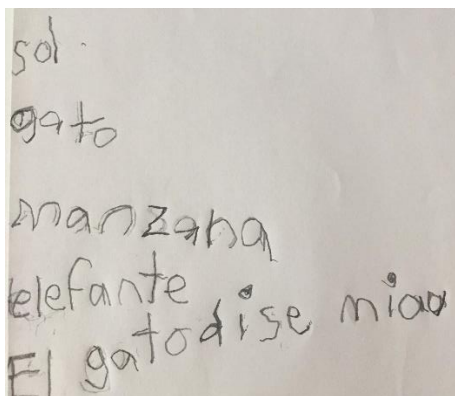 sol.
gato
manzana
elefante
El gato dise miau